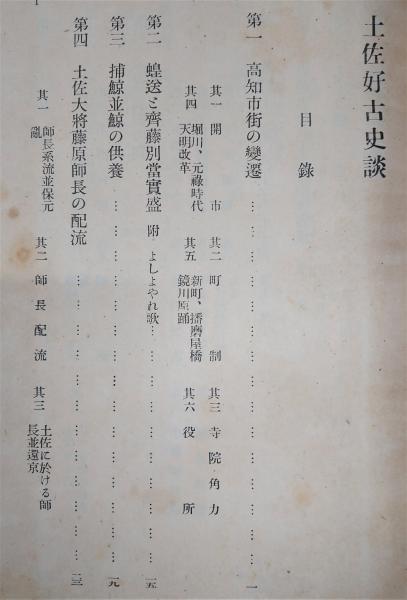 土佐好古史談
目錄
第一 高知市街の變遷………………………一
其一 開市 其二 町制 其三 寺院角力
其四 堀川、元祿時代天明改革 其五 新町、播磨屋橋鏡川原踊 其六 役所
第二 蝗送と齊藤別當實盛 附 よしよやれ歌………………一五
第三 捕鯨並鯨の供養………………………一九
第四 土佐大將藤原師長の配流………………………二三
其一 師長系流並保元亂 其二 師長配流 其三 土佐に於ける師長並還京
1